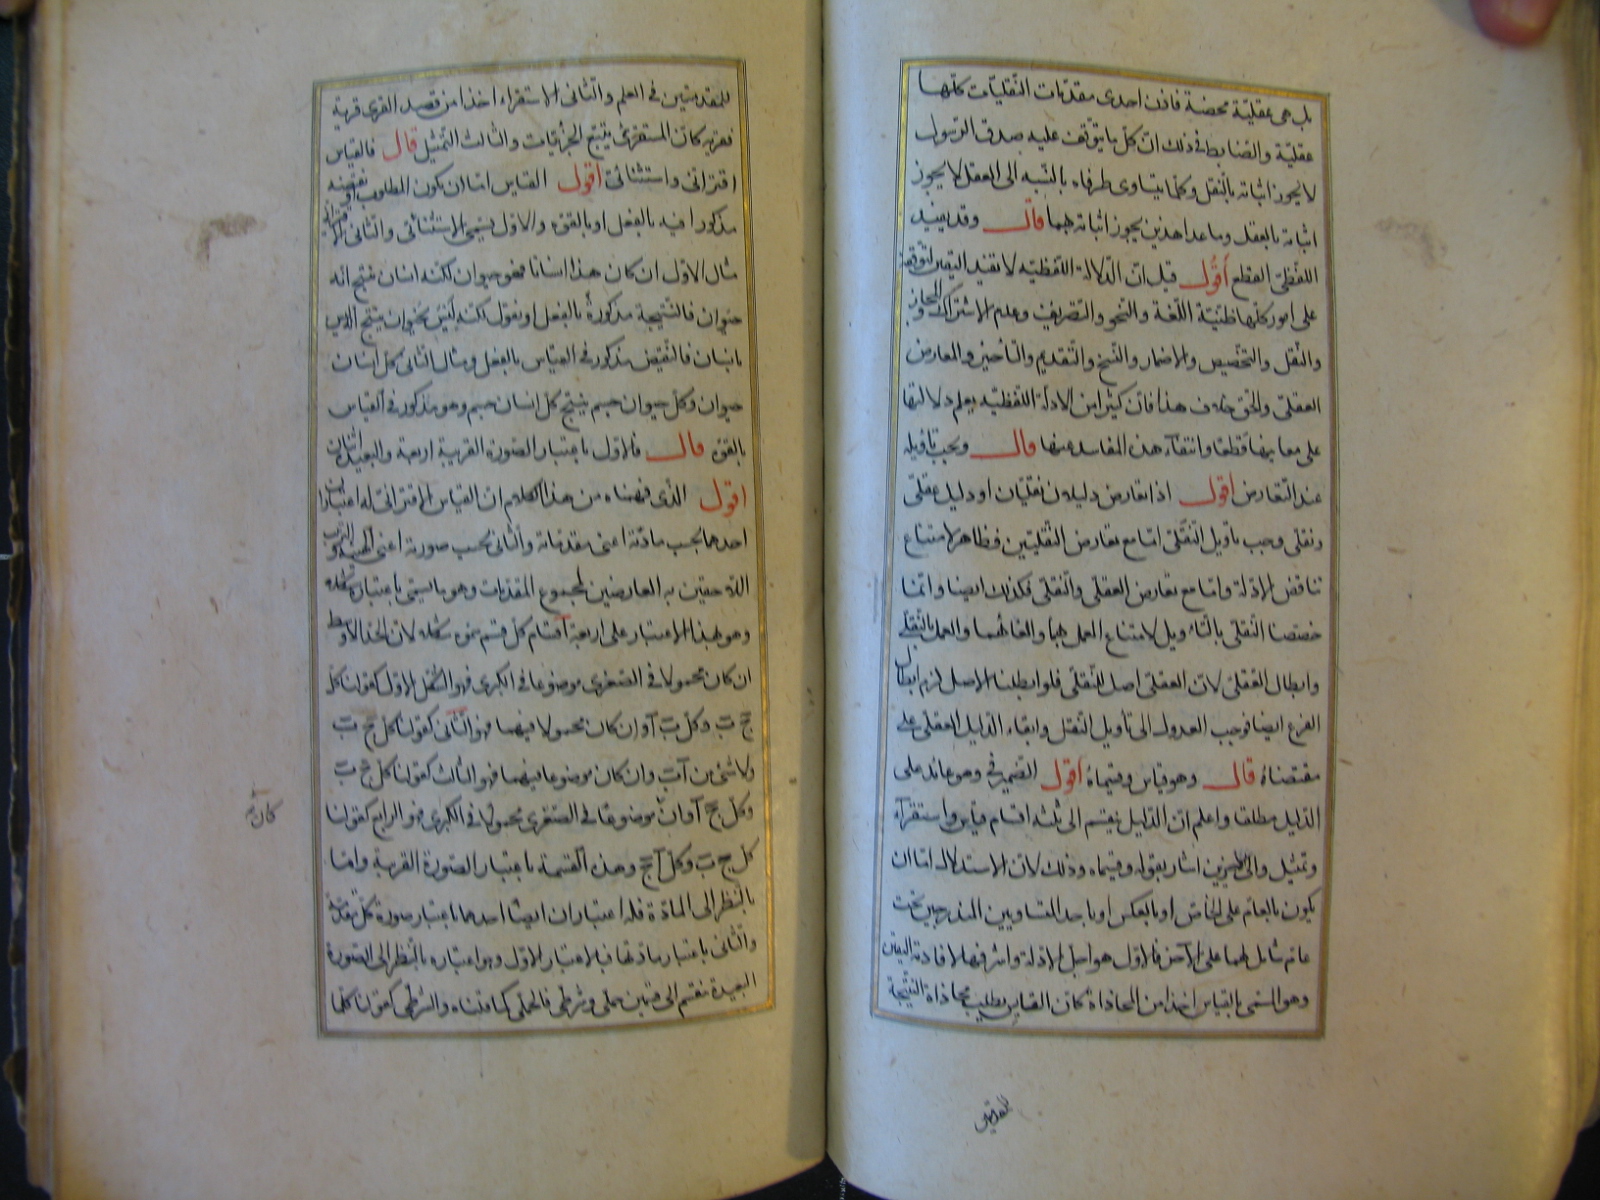 بل هى عقليّة محضة فاذن احدى مقدّمات النّقليّات كلّها
عقليّة والضّابط فى ذلك انّ كلّ ما يتوقّف عليه صدق الرّسول
لا يجوز اثباته بالنّقل وكلّما يتساوى طرفاه بالنّسبة الى العقل لا يجوز
اثباته بالعقل وما عدا هذين يجوز اثباته بهما قال وقد يفيد
اللّفظىّ القطع أقول قيل انّ الدّلالة اللّفظيّة لا تفيد اليقين لتوقّفها
على امور كلّها ظنيّة اللّغة والنّحو والتّصريف وعدم الاشتراك والمجاز
والنّقل والتّخصيص والاضمار والنّسخ والتّقديم والتّأخير والمعارض
العقلىّ والحقّ خلاف هذا فانّ كثيرا من الادلّة اللّفظيّة يعلم دلالتها
على معانيها قطعا وانتفاء هذه المفاسد عنها قال ويجب تأويله
عند التّعارض اقول اذا تعارض دليلان نقليّان او دليل عقلىّ
ونقلى وجب تأويل النّقلىّ امّا مع تعارض النّقليّين فظاهر لامتناع
تناقض الادلّة وامّا مع تعارض العقلى والنّقلى فكذلك ايضا وانّما
خصّصنا النّقلى بالتّأويل لامتناع العمل بهما والغائهما والعمل بالنّقلى
وابطال العقلىّ لانّ العقلىّ اصل للنّقلى فلو ابطلنا الاصل لزم ابطال
الفرع ايضا فوجب العدول الى تأويل النّقل وابقاء الدّليل العقلى على
مقتضاه قال وهو قياس وقسيماه اقول الضّمير فى وهو عائد على
الدّليل مطلقا واعلم انّ الدّليل ينقسم الى ثلثة اقسام قياس واستقراء
وتمثيل والى الاخيرين اشار بقوله وقسيماه وذلك لانّ الاستدلال امّا ان
يكون بالعامّ على الخاصّ او بالعكس او باحد المتساويين المندرجين تحت
عامّ شامل لهما على الآخر فالاوّل هو اجلّ الادلّة واشرفها لافادته اليقين
وهو المسمّى بالقياس اخذا من المحاذاة كانّ القياس يطلب محاذاة النّتيجة
للمقدمتين
للمقدمتين فى العلم والثّانى الاستقراء اخذا من قصد القرى قرية
فقرية كانّ المستقرئ يتتبّع الجزئيّات والثالث التّمثيل قال فالقياس
اقترانىّ واستثنائىّ اقول القياس امّا ان يكون المطلوب او نقيضه
مذكورا فيه بالفعل او بالقوّة والاوّل يسمّى الاستثنائى والثّانى الاقترانى
مثال الاوّل ان كان هذا انسانا فهو حيوان لكنّه انسان ينتج انّه
حيوان فالنّتيجة مذكورة بالفعل او نقول لكنّه ليس بحيوان ينتج انّه ليس
بانسان فالنّقيض مذكور فى القياس بالفعل ومثال الثانى كلّ انسان
حيوان وكلّ حيوان جسم ينتج كلّ انسان جسم وهو مذكور فى القياس
بالقوّة قال فالاوّل باعتبار الصّورة القريبة اربعة والبعيدة اثنان
اقول الذّى فهمناه من هذا الكلام انّ القياس الاقترانىّ له اعتباران
احدهما بحسب مادّته اعنى مقدّماته والثّانى بحسب صورته اعنى الهيئة والترتيب
اللّاحقين به العارضين لمجموع المقدّمات وهو ما يسمّى باعتباره شكلا
وهو بهذا الاعتبار على اربعة اقسام كلّ قسم شكله لانّ الحدّ الاوسط
ان كان محمولا فى الصّغرى موضوعا فى الكبرى فهو الشّكل الاوّل كقولنا كلّ
ج ب وكلّ ب آ وان كان محمولا فيهما فهو الثّانى كقولنا كلّ ج ب
ولا شىء من آ ب وان كان موضوعا فيهما فهو الثالث كقولنا كلّ ج ب
وكلّ ج آ وان موضوعا فى الصّغرى محمولا فى الكبرى فهو الرابع كقولنا
كان
كلّ ج ب وكلّ آ ج وهذه القسمة باعتبار الصّورة القريبة وامّا
بالنّظر الى المادّة فله اعتباران ايضا احدهما باعتبار صورة كلّ مقدّمة
والثّانى باعتبار مادّتها فبالاعتبار الاوّل وهو اعتباره بالنّظر الى الصّورة
البعيدة ينقسم الى قسمين حملى وشرطى فالحملى كما قلناه والشّرطى كقولنا كلّما